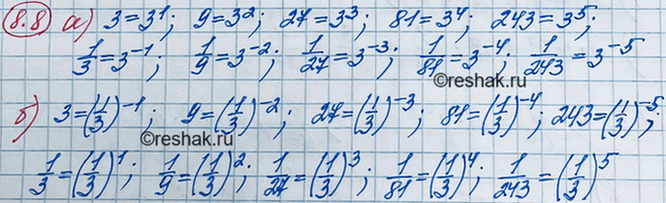 8.8 а) 3 = 3¹; 9 = 3²; 27 = 3³; 81 = 3⁴; 243 = 3⁵;
1/3 = 3⁻¹; 1/9 = 3⁻²; 1/27 = 3⁻³; 1/81 = 3⁻⁴; 1/243 = 3⁻⁵
©reshak.ru
б) 3 = (1/3)⁻¹; 9 = (1/3)⁻²; 27 = (1/3)⁻³; 81 = (1/3)⁻⁴; 243 = (1/3)⁻⁵;
©reshak.ru
1/3 = (1/3)¹; 1/9 = (1/3)²; 1/27 = (1/3)³; 1/81 = (1/3)⁴; 1/243 = (1/3)⁵